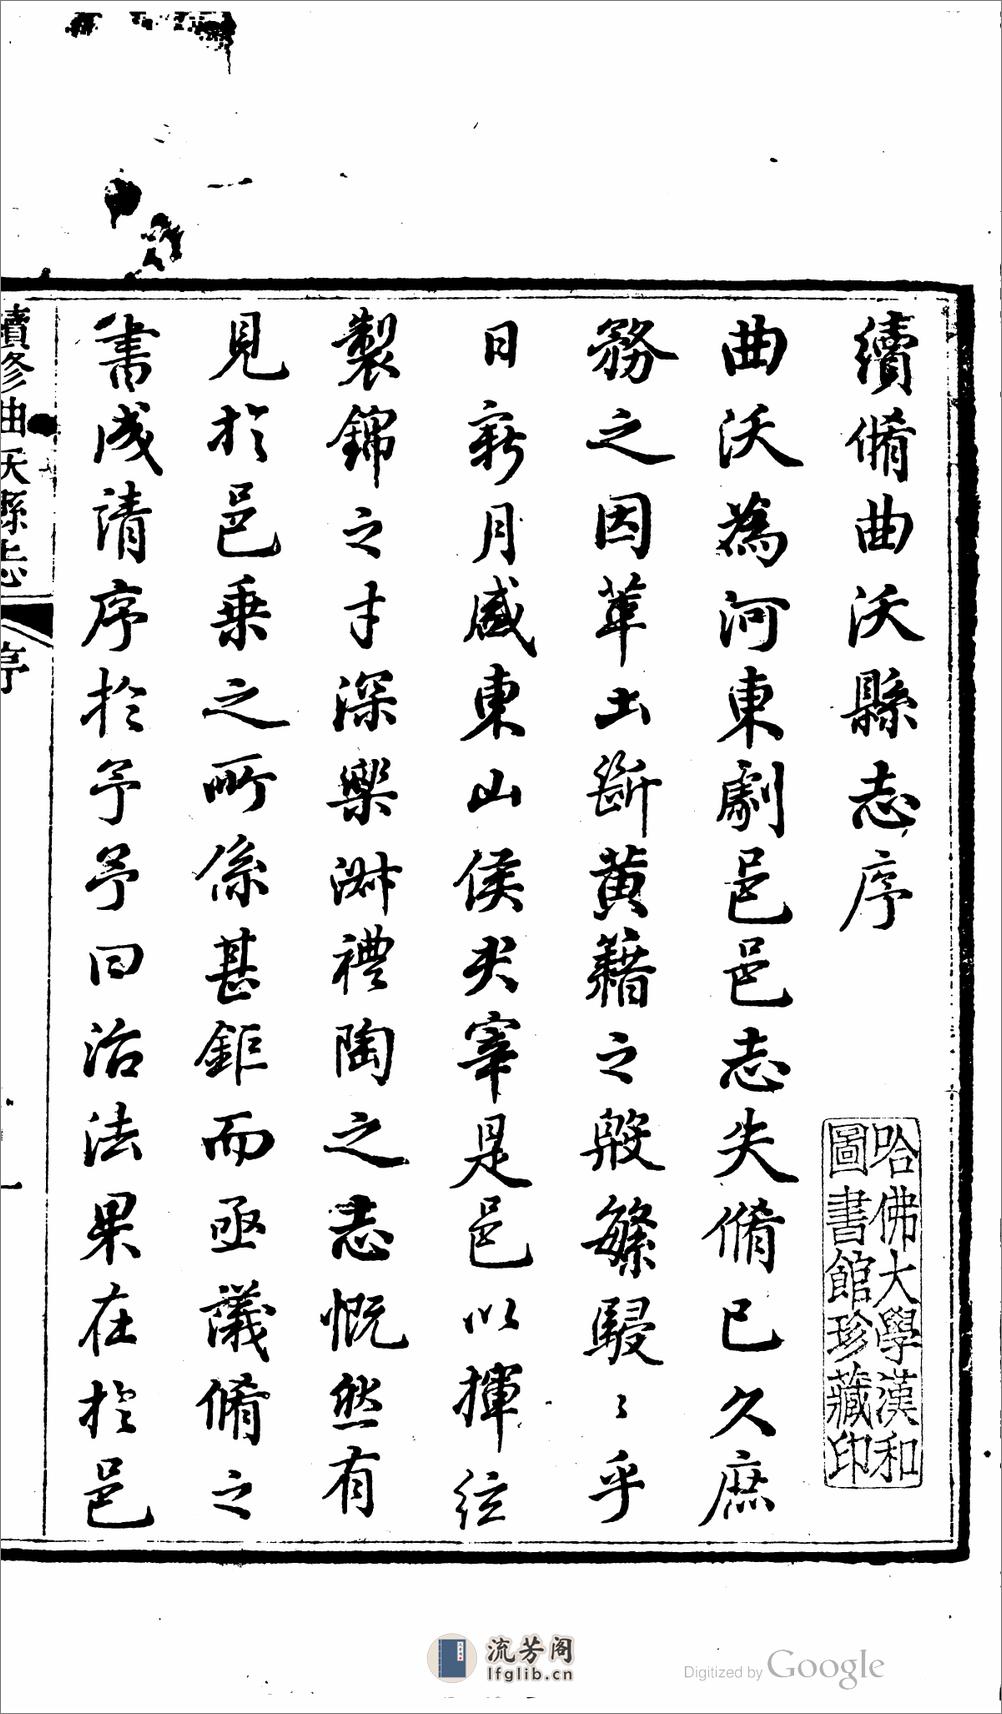 續脩曲沃縣志序
曲沃為河東劇邑邑志失脩已久庶
務之因革土斷黄籍之殷繁駸〻乎
日新月盛東山侯犬宰是邑以揮弦
製錦之才深樂㳤禮陶之志慨然有
見於邑乗之所係甚鉅而亟議脩之
書成清序於予予曰治法果在於邑
續修曲沃縣志
序
一
哈佛大學漢和
圖書館珍藏印
流芳阁
lfglib.cn
Digitized by Google